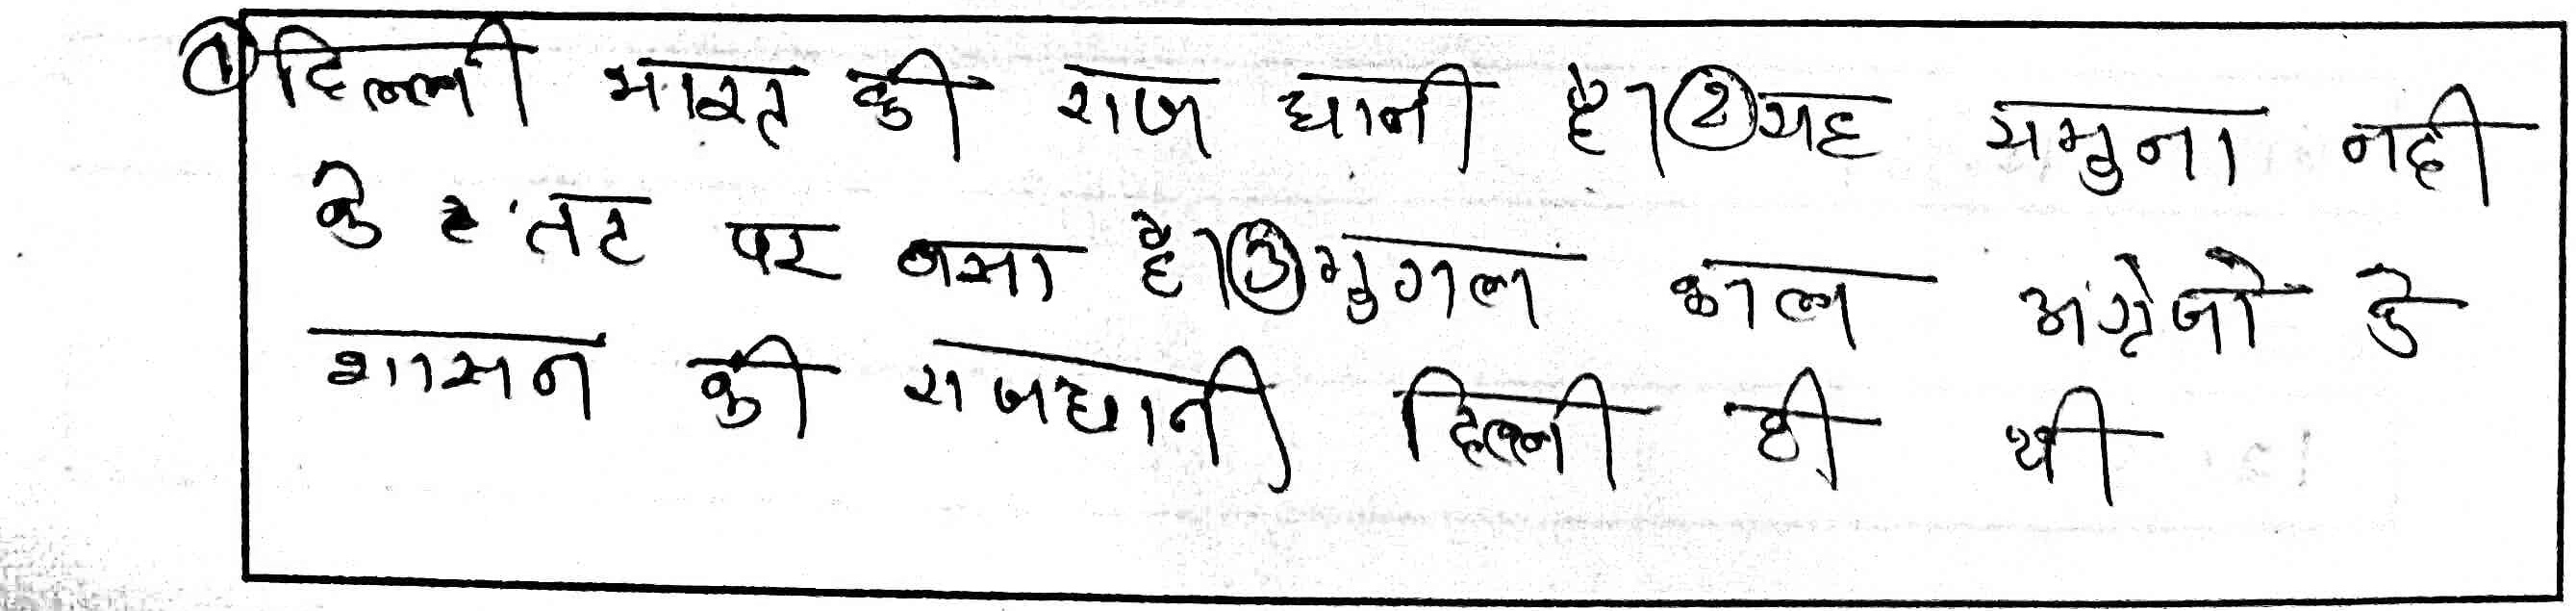 ① दिल्ली भारत की राज धानी है। ② यह यमुना नदी
के तट पर बसा है। ③ मुगल काल अंग्रेजो के
शासन की राजधानी दिल्ली ही थी